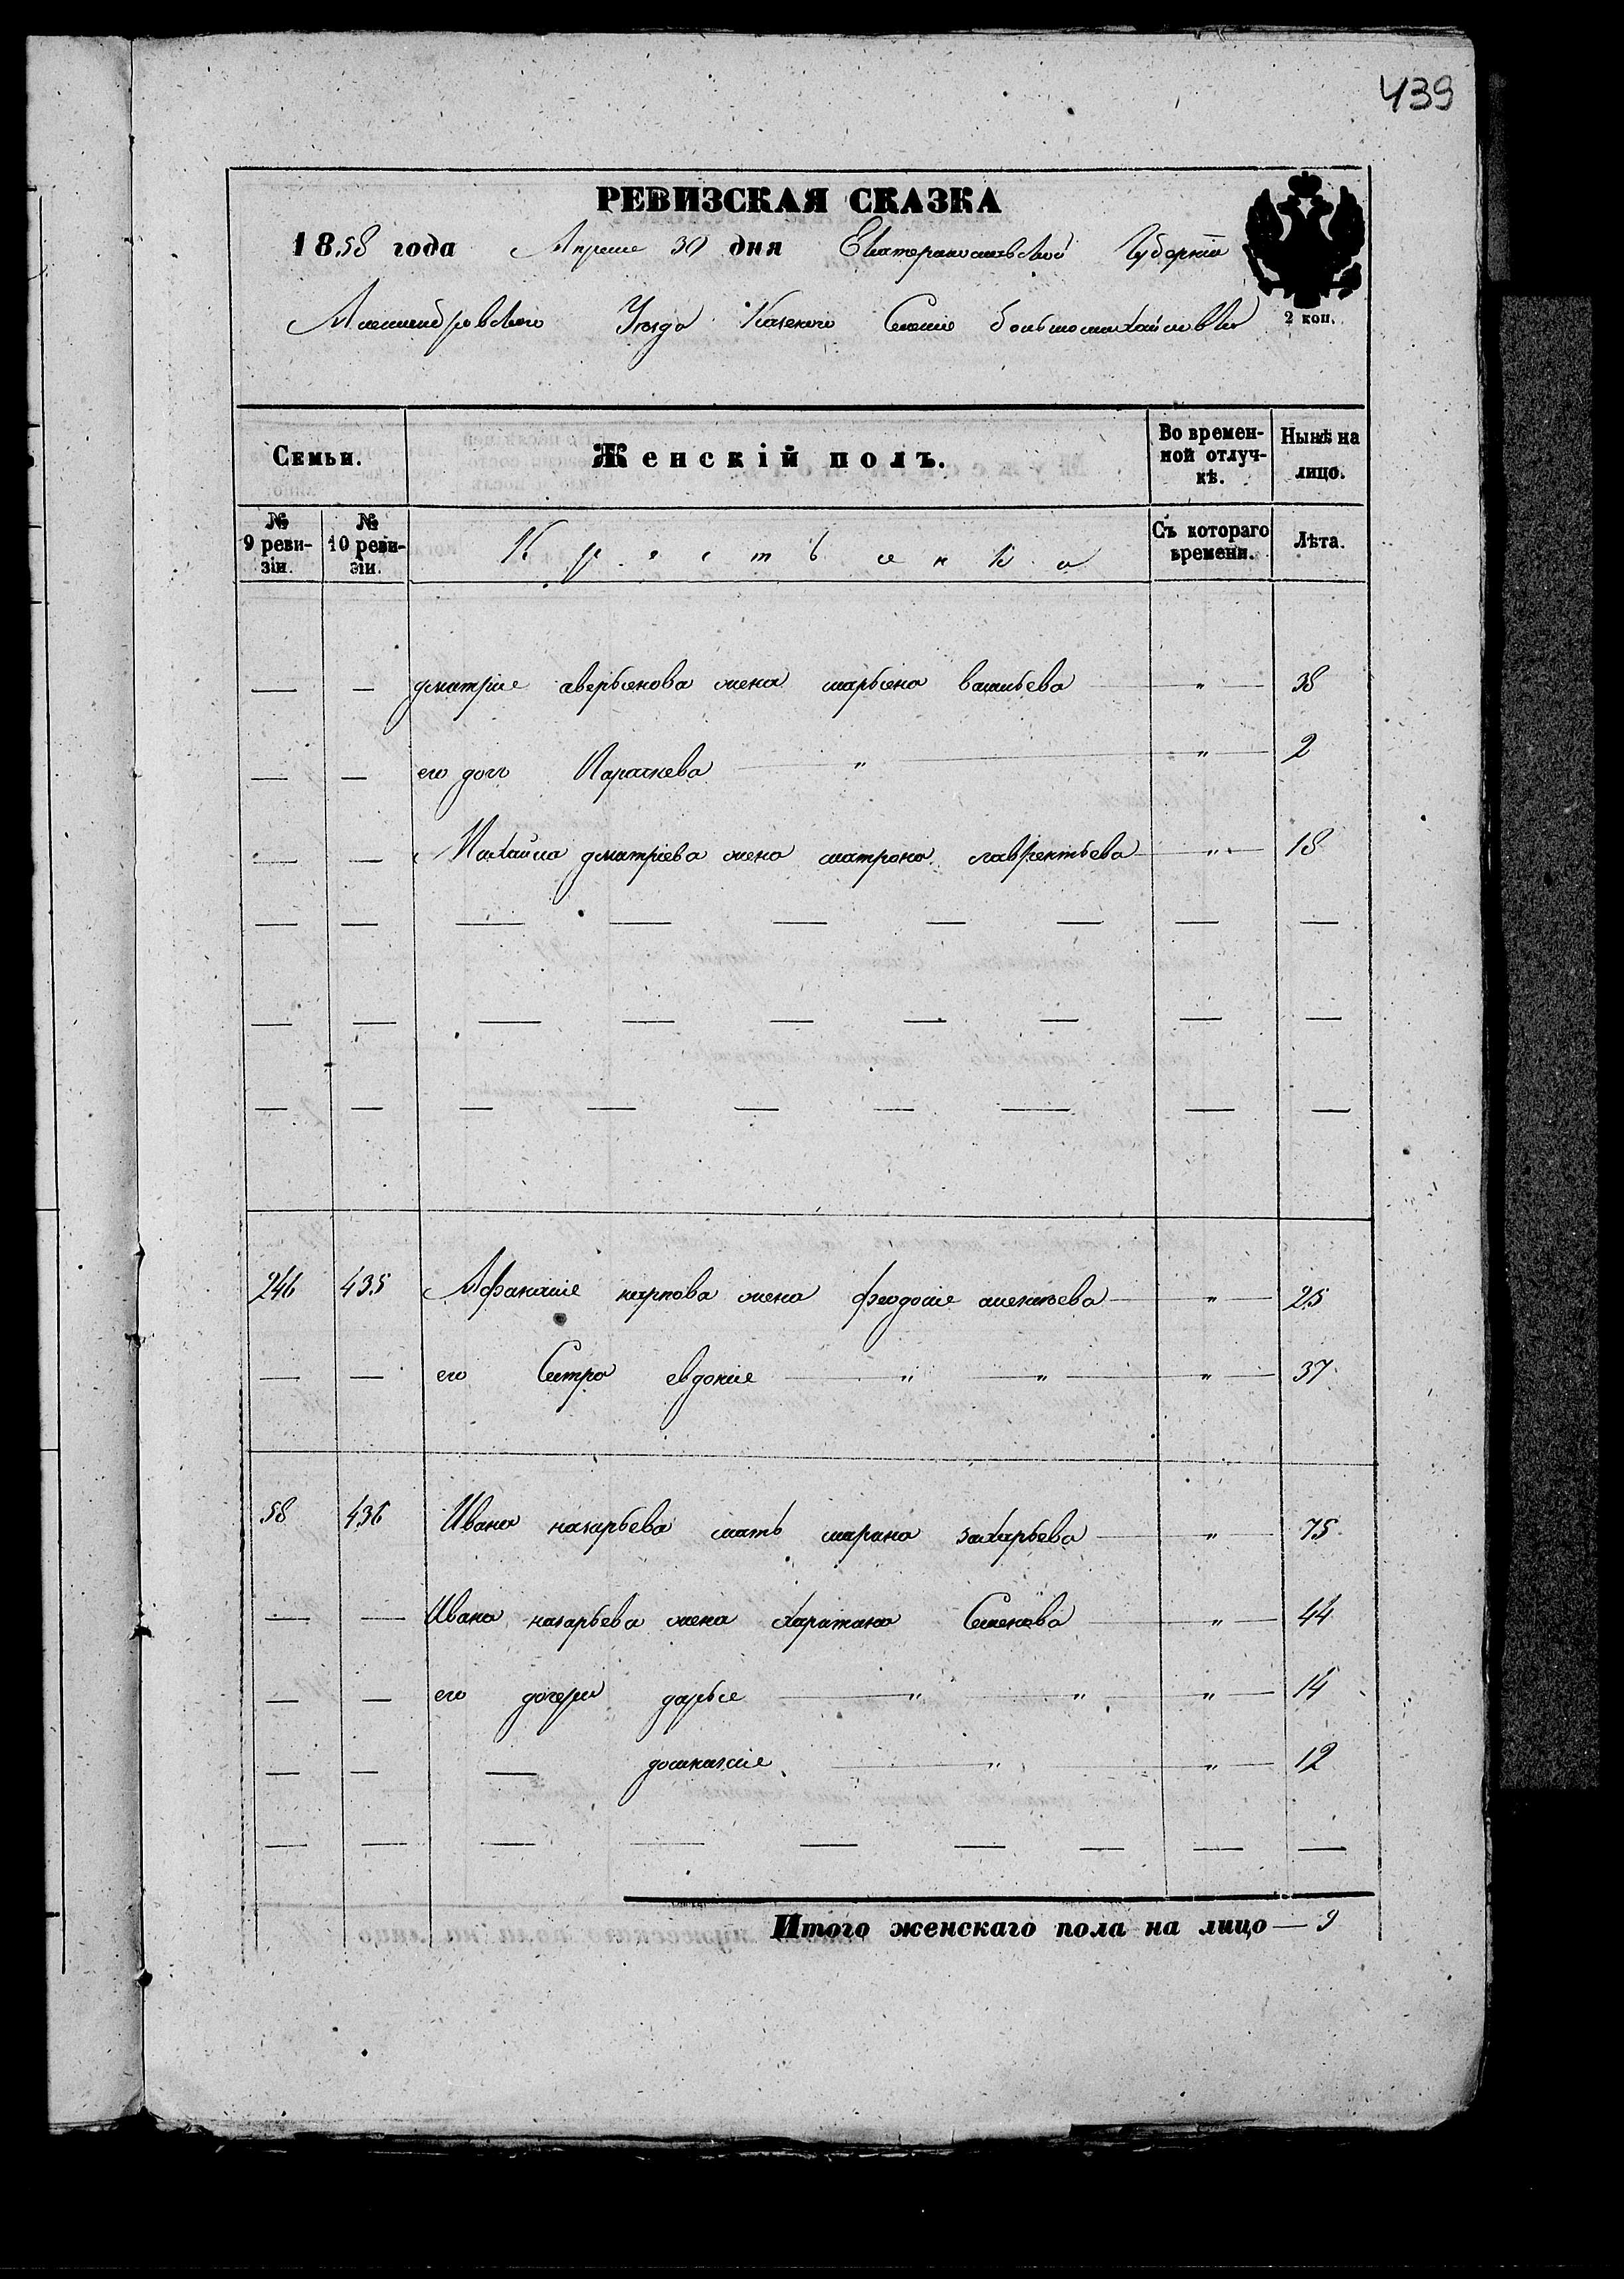 439
РЕВИЗСКАЯ СКАЗКА
1858 года Апреля 30 дня Екатеринославской Губернии
Александровского Уезда Казенного Селения большомихайловки
2 коп.
Семьи. Женскій полъ. Во времен-ной отлуч-кѣ. Нынѣ на лицо.
№ 9 реви-зіи. № 10 реви-зіи. Съ котораго времени. Лѣта.
— — дмитрие аверьенова жена марьена васильева — " — 38
— — его доч Парачкева — " — " — 2
— — Михайла дмитріева жена матрона лаврентьева — " — 18
— — — — — — — — —
— — — — — — — — —
— — — — — — — — —
246 435 Афанасие карпова жена феодосие алексеева — " — 25
— — его Сестра евдокие — " — " — " — 37
58 436 Ивана назарьева мать марина захарьева — " — 75
— — Ивана назарьева жена харитина Семенова — " — 44
— — его дочери дарье — " — " — " — 14
— — — домникие — " — " — 12
— — — — — — — — —
Итого женскаго пола на лицо — 9